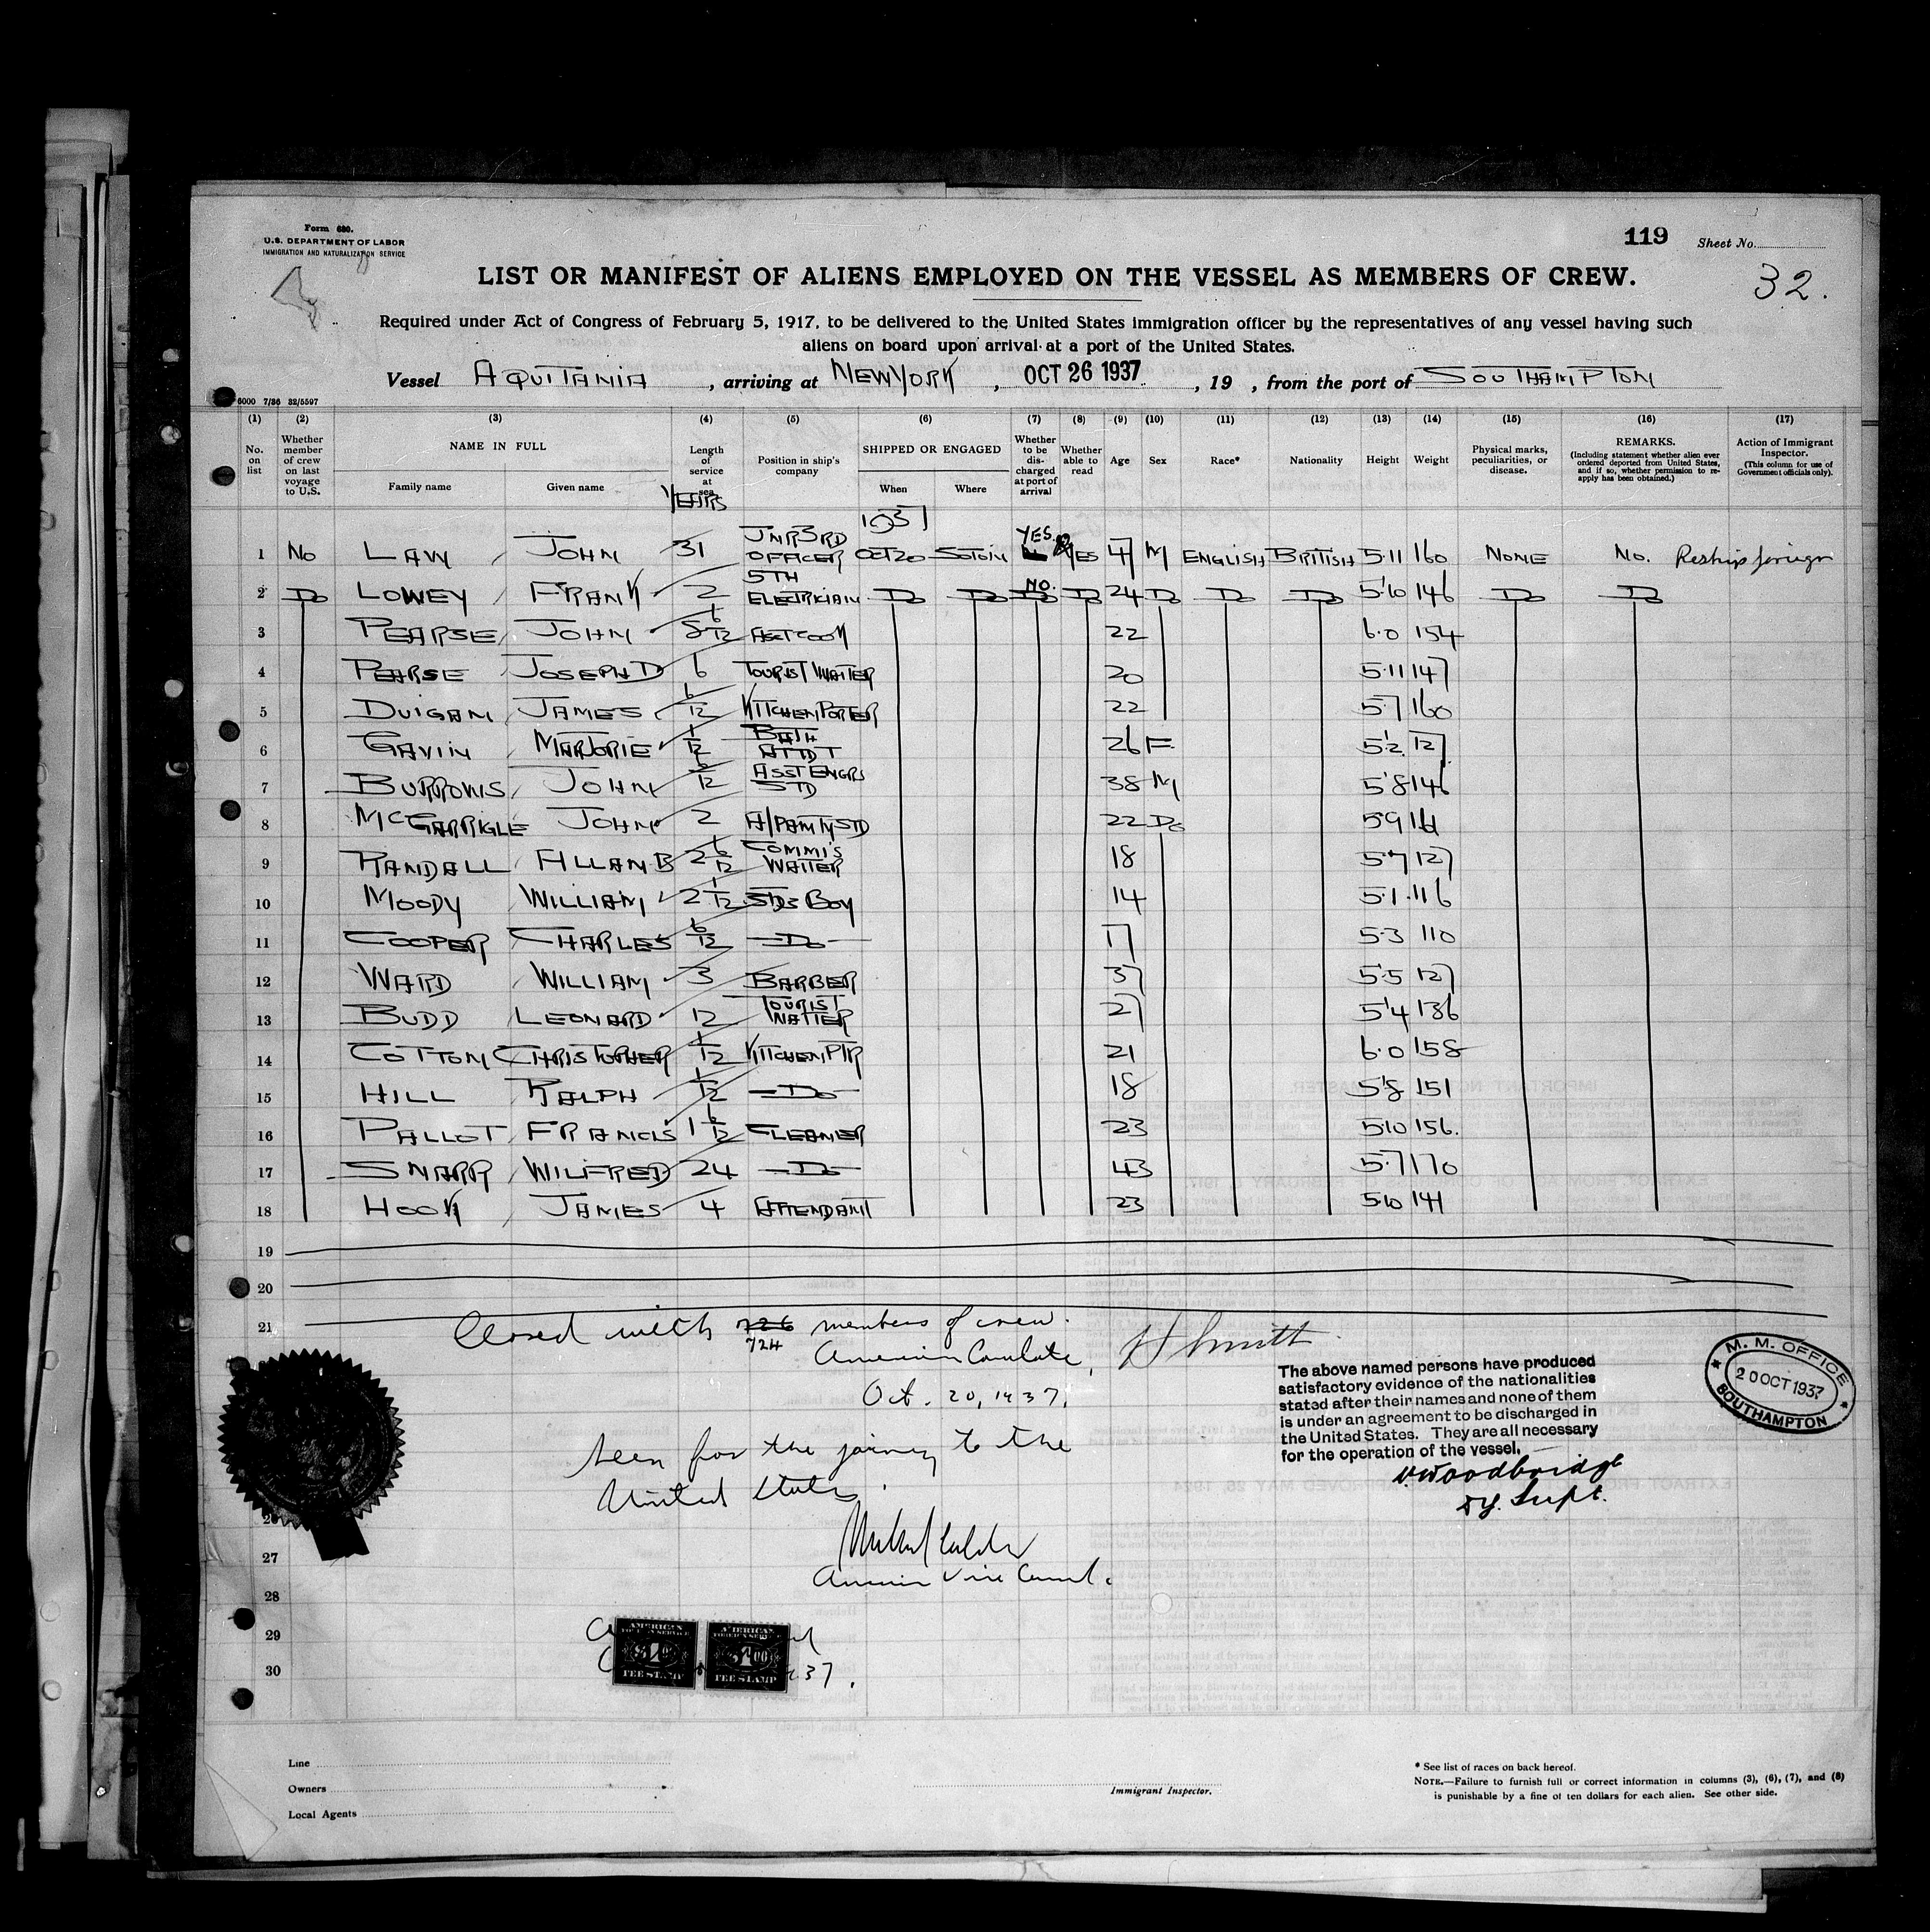 Form 680.
U.S. DEPARTMENT OF LABOR
IMMIGRATION AND NATURALIZATION SERVICE
119 Sheet No.
32.
LIST OR MANIFEST OF ALIENS EMPLOYED ON THE VESSEL AS MEMBERS OF CREW.
Required under Act of Congress of February 5, 1917, to be delivered to the United States immigration officer by the representatives of any vessel having such
aliens on board upon arrival at a port of the United States.
Vessel AQUITANIA, arriving at NEW YORK, OCT 26 1937, 19 , from the port of SOUTHAMPTON
6000 7/36 32/5597
(1) (2) (3) (4) (5) (6) (7) (8) (9) (10) (11) (12) (13) (14) (15) (16) (17)
No. on list
Whether member of crew on last voyage to U.S.
NAME IN FULL
Family name Given name
Length of service at sea
YEARS
Position in ship's company
SHIPPED OR ENGAGED
When Where
Whether to be discharged at port of arrival
Whether able to read
Age Sex Race* Nationality Height Weight
Physical marks, peculiarities, or disease.
REMARKS.
(Including statement whether alien ever ordered deported from United States, and if so, whether permission to reapply has been obtained.)
Action of Immigrant Inspector.
(This column for use of Government officials only).
1937
1 No LAVY JOHN 31 JNR 3RD OFFICER OCT 20 SOTON YES. YES 47 M ENGLISH BRITISH 5·11 160 NONE No. Reship foreign
2 Do LOWEY FRANK 2 5TH ELECTRICIAN Do Do NO. Do Do 24 Do Do Do 5'10 146 Do Do
3 PEARSE JOHN 8 6/12 ASST COOK 22 6·0 154
4 PEARSE JOSEPH D 6 TOURIST WAITER 20 5·11 147
5 DUIGAN JAMES 6/12 KITCHEN PORTER 22 5·7 160
6 GAVIN MARJORIE 1/12 BATH ATTDT 26 F. 5'2 127
7 BURROWS JOHN /12 ASST ENGRS STD 38 M 5'8 146
8 McGARRIGLE JOHN 2 A/PANTY STD 22 Do 5'9
9 RANDALL ALLAN B 2 6/12 COMMIS WAITER 18 5·7 127
10 MOODY WILLIAM 2 1/12 STDS BOY 14 5·1 116
11 COOPER CHARLES 6/12 Do 17 5·3 110
12 WARD WILLIAM 3 BARBER 37 5·5 127
13 BUDD LEONARD 12 TOURIST WAITER 27 5'4 136
14 COTTON CHRISTOPHER 1/12 KITCHEN PTR 21 6·0 158
15 HILL RALPH 1/12 Do 18 5'8 151
16 PALLOT FRANCIS 1 6/12 CLEANER 23 5·10 156.
17 SNARR WILFRED 24 Do 43 5·7 170
18 HOOK JAMES 4 ATTENDANT 23 5·10 141
19
20
21
Closed with 726 members of crew.
724
American Consulate,
H Smith
Oct. 20, 1937.
Seen for the journey to the
United States.
American Vice Consul.
The above named persons have produced
satisfactory evidence of the nationalities
stated after their names and none of them
is under an agreement to be discharged in
the United States. They are all necessary
for the operation of the vessel.
Woodbridge
Dy. Supt.
M. M. OFFICE
20 OCT 1937
SOUTHAMPTON
27
28
29
30
AMERICAN
FOREIGN SERVICE
$1.00
FEE STAMP
AMERICAN
FOREIGN SERVICE
$1.00
FEE STAMP
37.
Line
Owners
Local Agents
Immigrant Inspector.
* See list of races on back hereof.
NOTE.—Failure to furnish full or correct information in columns (3), (6), (7), and (8)
is punishable by a fine of ten dollars for each alien. See other side.